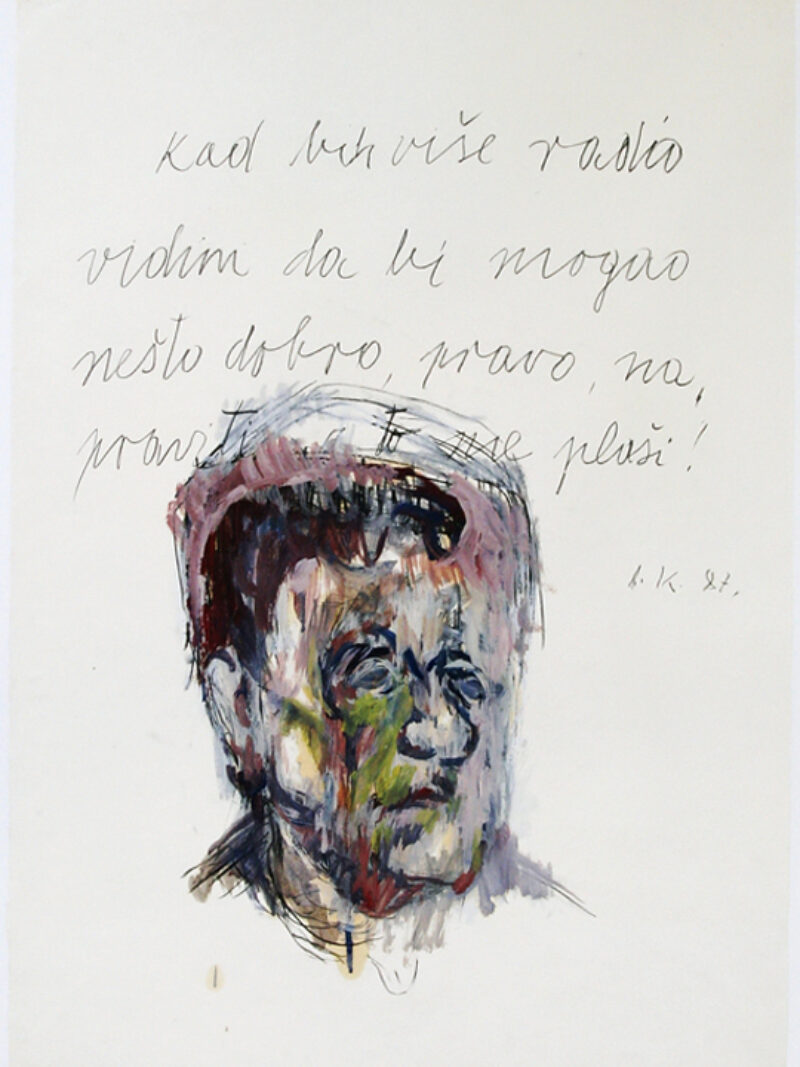 kad bih više radio
vidim da bi mogao
nešto dobro, pravo, na,
praviti a to me plaši!
K. 87.